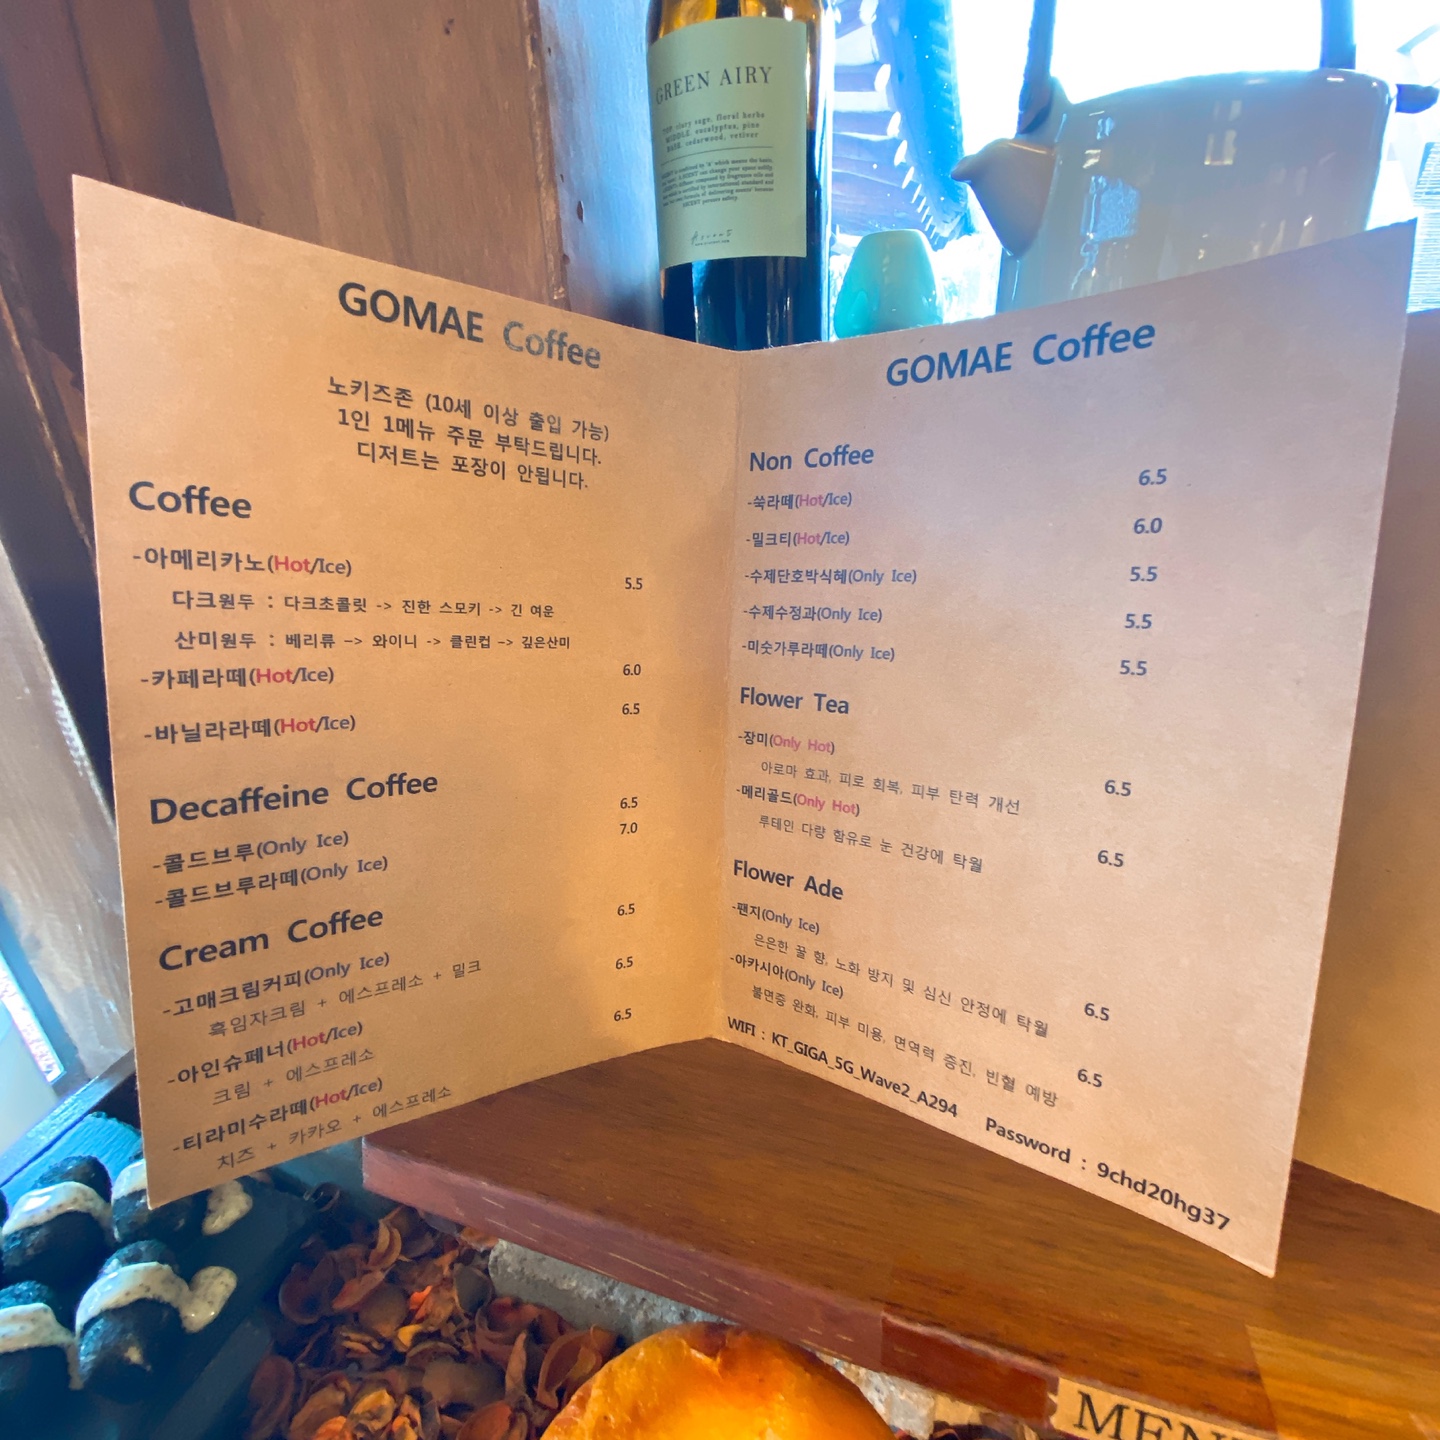 GREEN AIRY
TOP. clary sage, floral herbs
MIDDLE. eucalyptus, pine
BASE. cedarwood, vetiver
GOMAE Coffee
노키즈존 (10세 이상 출입 가능)
1인 1메뉴 주문 부탁드립니다.
디저트는 포장이 안됩니다.
Coffee
-아메리카노(Hot/Ice) 5.5
다크원두 : 다크초콜릿 -> 진한 스모키 -> 긴 여운
산미원두 : 베리류 -> 와이니 -> 클린컵 -> 깊은산미
-카페라떼(Hot/Ice) 6.0
-바닐라라떼(Hot/Ice) 6.5
Decaffeine Coffee
-콜드브루(Only Ice) 6.5
-콜드브루라떼(Only Ice) 7.0
Cream Coffee
-고매크림커피(Only Ice) 6.5
흑임자크림 + 에스프레소 + 밀크
-아인슈페너(Hot/Ice) 6.5
크림 + 에스프레소
-티라미수라떼(Hot/Ice) 6.5
치즈 + 카카오 + 에스프레소
GOMAE Coffee
Non Coffee
-쑥라떼(Hot/Ice) 6.5
-밀크티(Hot/Ice) 6.0
-수제단호박식혜(Only Ice) 5.5
-수제수정과(Only Ice) 5.5
-미숫가루라떼(Only Ice) 5.5
Flower Tea
-장미(Only Hot) 6.5
아로마 효과, 피로 회복, 피부 탄력 개선
-메리골드(Only Hot) 6.5
루테인 다량 함유로 눈 건강에 탁월
Flower Ade
-팬지(Only Ice) 6.5
은은한 꿀 향, 노화 방지 및 심신 안정에 탁월
-아카시아(Only Ice) 6.5
불면증 완화, 피부 미용, 면역력 증진, 빈혈 예방
WIFI : KT_GIGA_5G_Wave2_A294 Password : 9chd20hg37